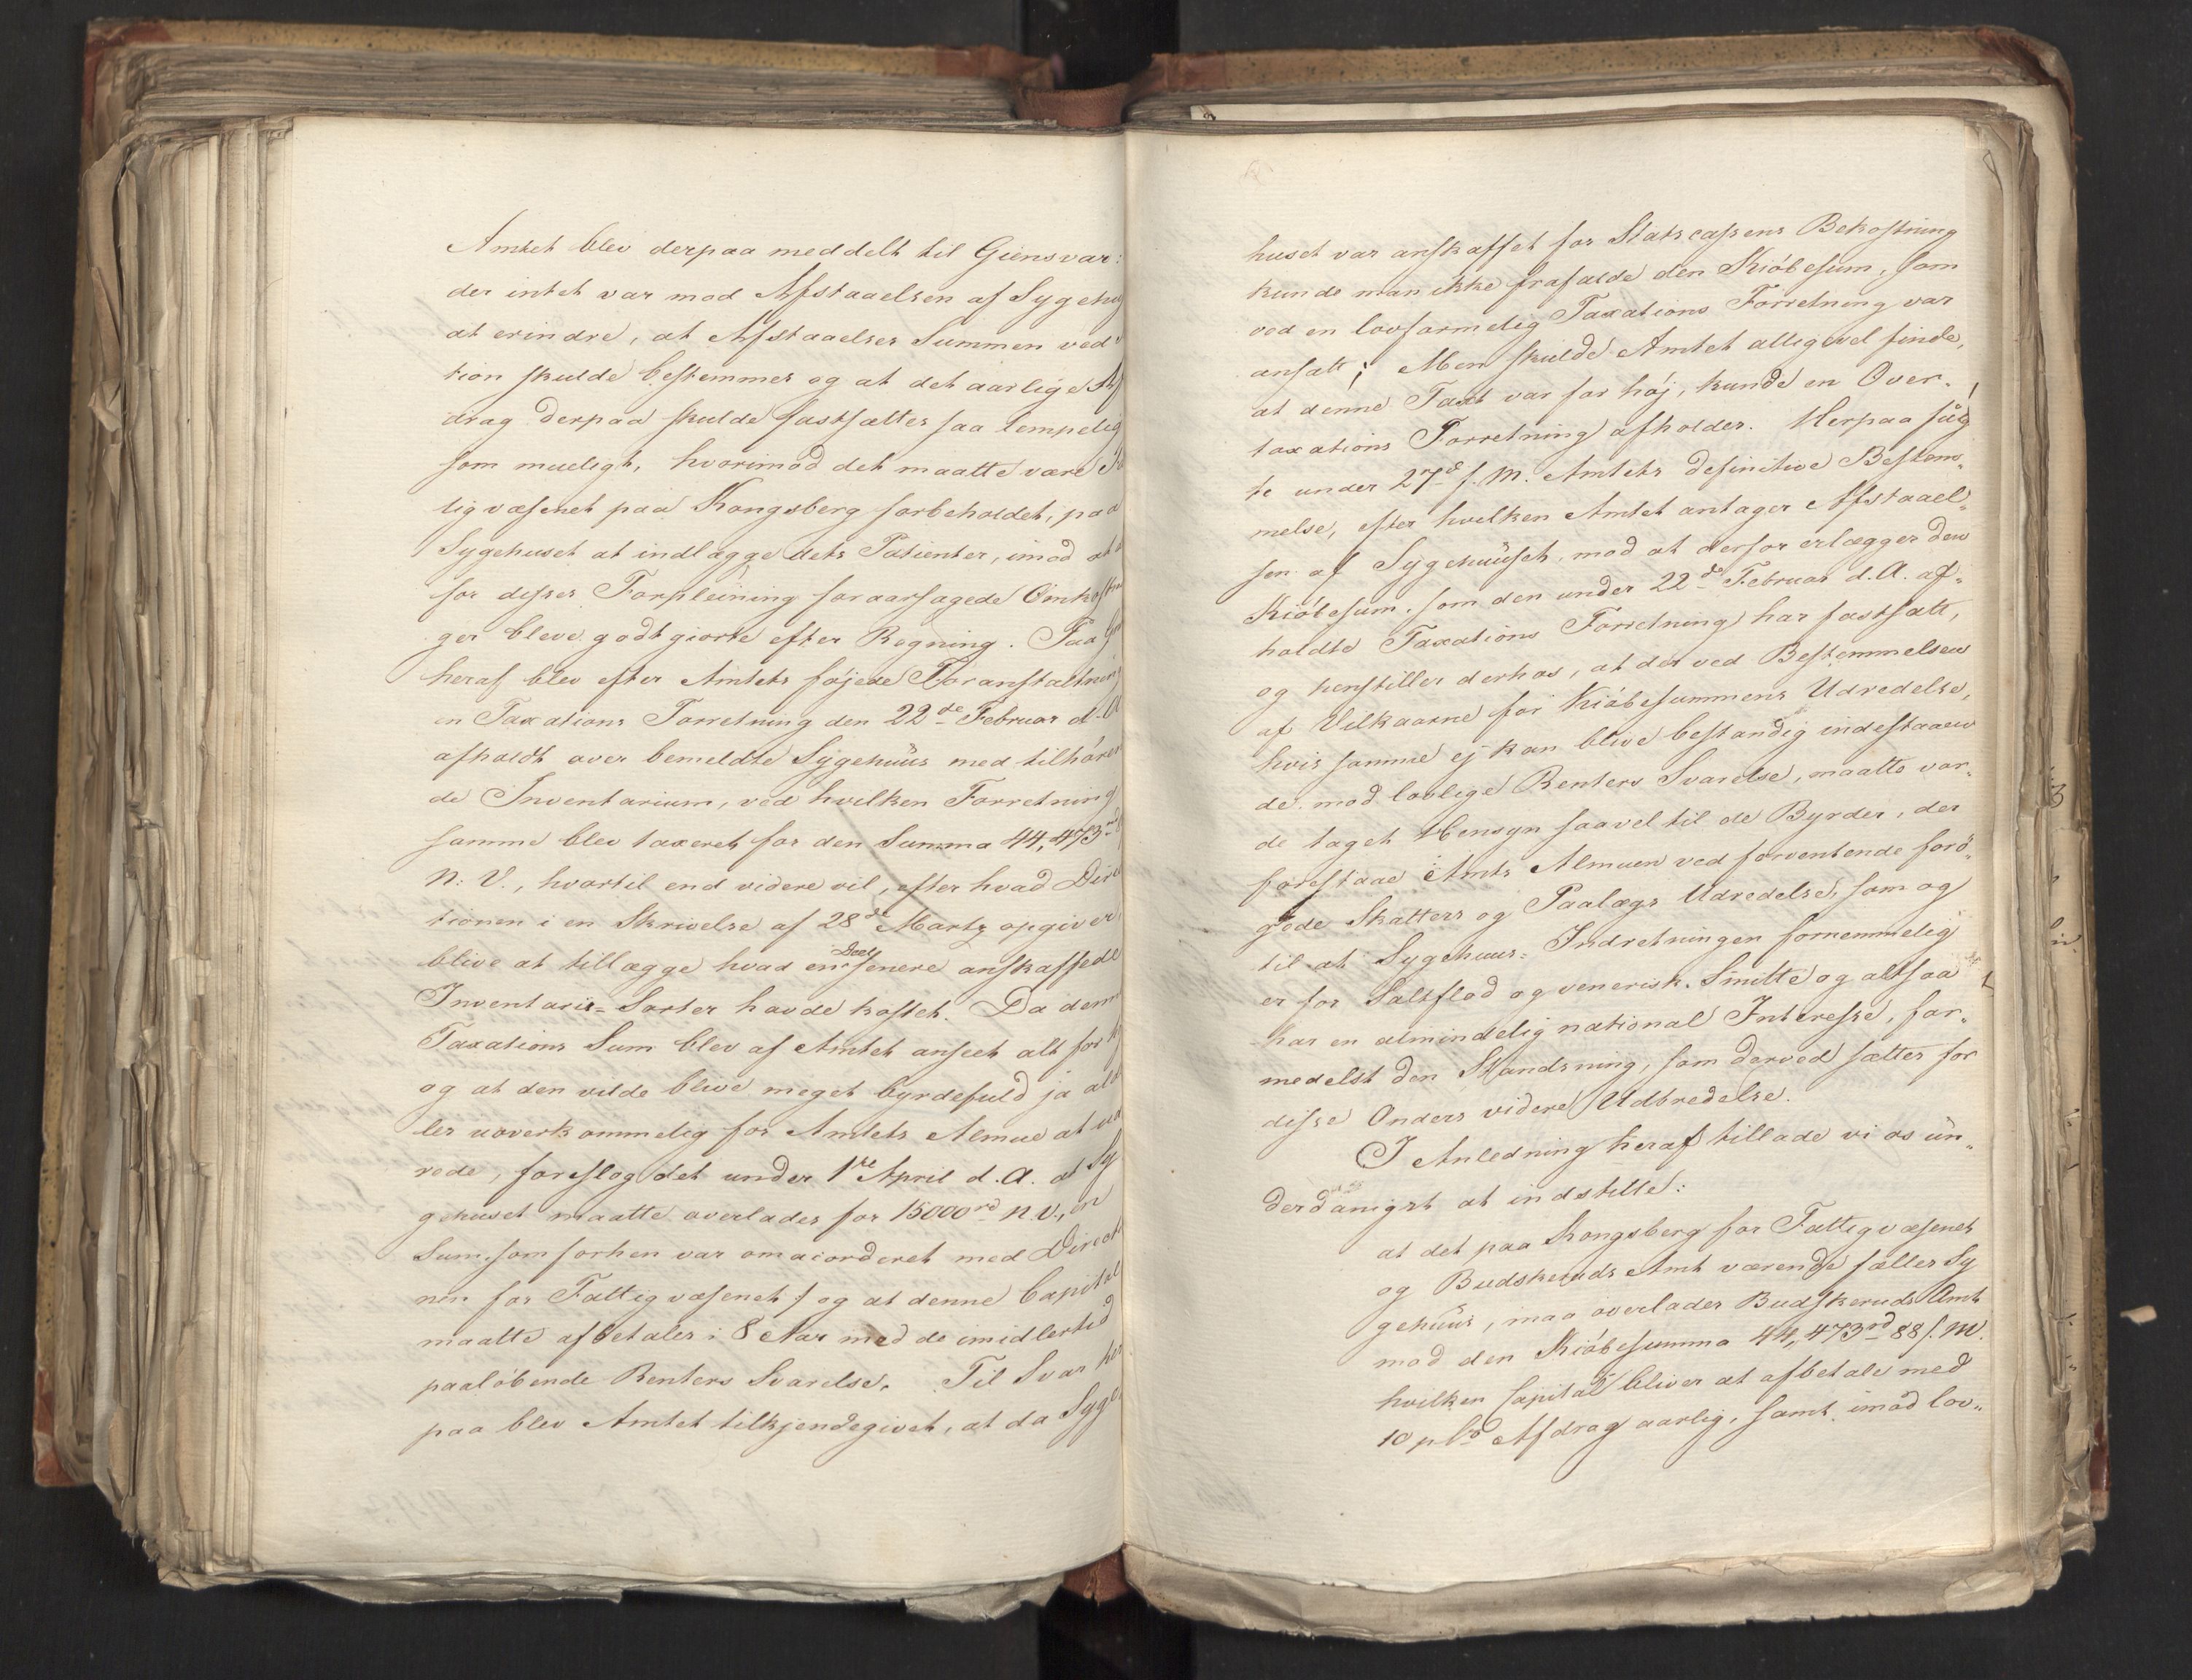 Amtet blev derpaa meddelt til Giensvar:
der intet var mod Afstaaelsen af Sygehu
at erindre, at Afstaaelses Summen ved
tion skulde bestemmes og at det aarlige Af
drag derpaa skulde fastsættes saa lempelig
som mueligt, hvorimod det maatte være
tigvæsenet paa Kongsberg forbeholdet, paa
Sygehuset at indlægge dets Patienter, imod at
for disses Forpleining foraarsagede Omkostn
ger bleve godtgiorte efter Regning. Paa
heraf blev efter Amtets føjede Foranstaltning
en Taxations Forretning den 22de Februar d. A
afholdt over bemeldte Sygehuus med tilhören
de Inventarium, ved hvilken Forretning
samme blev taxeret for den Summa 44,473rd
N: V., hvortil end videre vil, efter hvad Direc
tionen i en Skrivelse af 28de Martz opgiver,
blive at tillægge hvad en Deel senere anskaffede
Inventarie-Sorter havde kostet. Da denne
Taxations Sum blev af Amtet anseet alt for h
og at den vilde blive meget byrdefuld ja al
les uoverkommelig for Amtets Almue at ud
rede, foreslog det under 1ste April d. A. at Sy
gehuset maatte overlades for 15000rd N.V., en
Sum, som forhen var omacorderet med Direct
nen for Fattigvæsenet / og at denne Capital
maatte afbetales i 8 Aar med de imidlertid
paalöbende Renters Svarelse. Til Svar her
paa blev Amtet tilkjendegivet, at da Syge
huset var anskaffet for Statscassens Bekostning
kunde man ikke frafalde den Kiöbesum, som
ved en lovformelig Taxations Forretning var
ansatt; Men skulde Amtet alligevel finde,
at denne Taxt var for höj, kunde en Over-
taxations Forretning afholdes. Herpaa fulg
te under 27de f. M. Amtets definitive Bestem-
melse, efter hvilken Amtet antager Afstaael-
sen af Sygehuuset, mod at derfor erlægges den
Kiöbesum, som den under 22de Februar d. A. af-
holdte Taxations Forretning har fastsatt,
og henstiller derhos, at der ved Bestemmelsen
af Vilkaarne for Kiöbesummens Udredelse,
hvis samme ej kan blive bestandig indestaaen
de, mod lovlige Renters Svarelse, maatte vor-
de taget Hensyn saavel til de Byrder, der
forestaae Amts Almuen ved forventende forö-
gede Skatters og Paalægs Udredelse, som og
til at Sygehuus-Indretningen fornemmelig
er for Saltflod og venerisk Smitte og altsaa
har en almindelig national Interesse, for-
medelst den Standsning, som derved sættes for
disse Onders videre Udbredelse.
I Anledning heraf tillade vi os un-
derdanigst at indstille:
at det paa Kongsberg for Fattigvæsenet
og Budskeruds Amt værende fælles Sy
gehuus, maa overlades Budskeruds Amt
mod den Kiöbesumma 44,473rd 88 s. N.V.
hvilken Capital bliver at afbetale med
10 pCt Afdrag aarlig, samt imod lov-